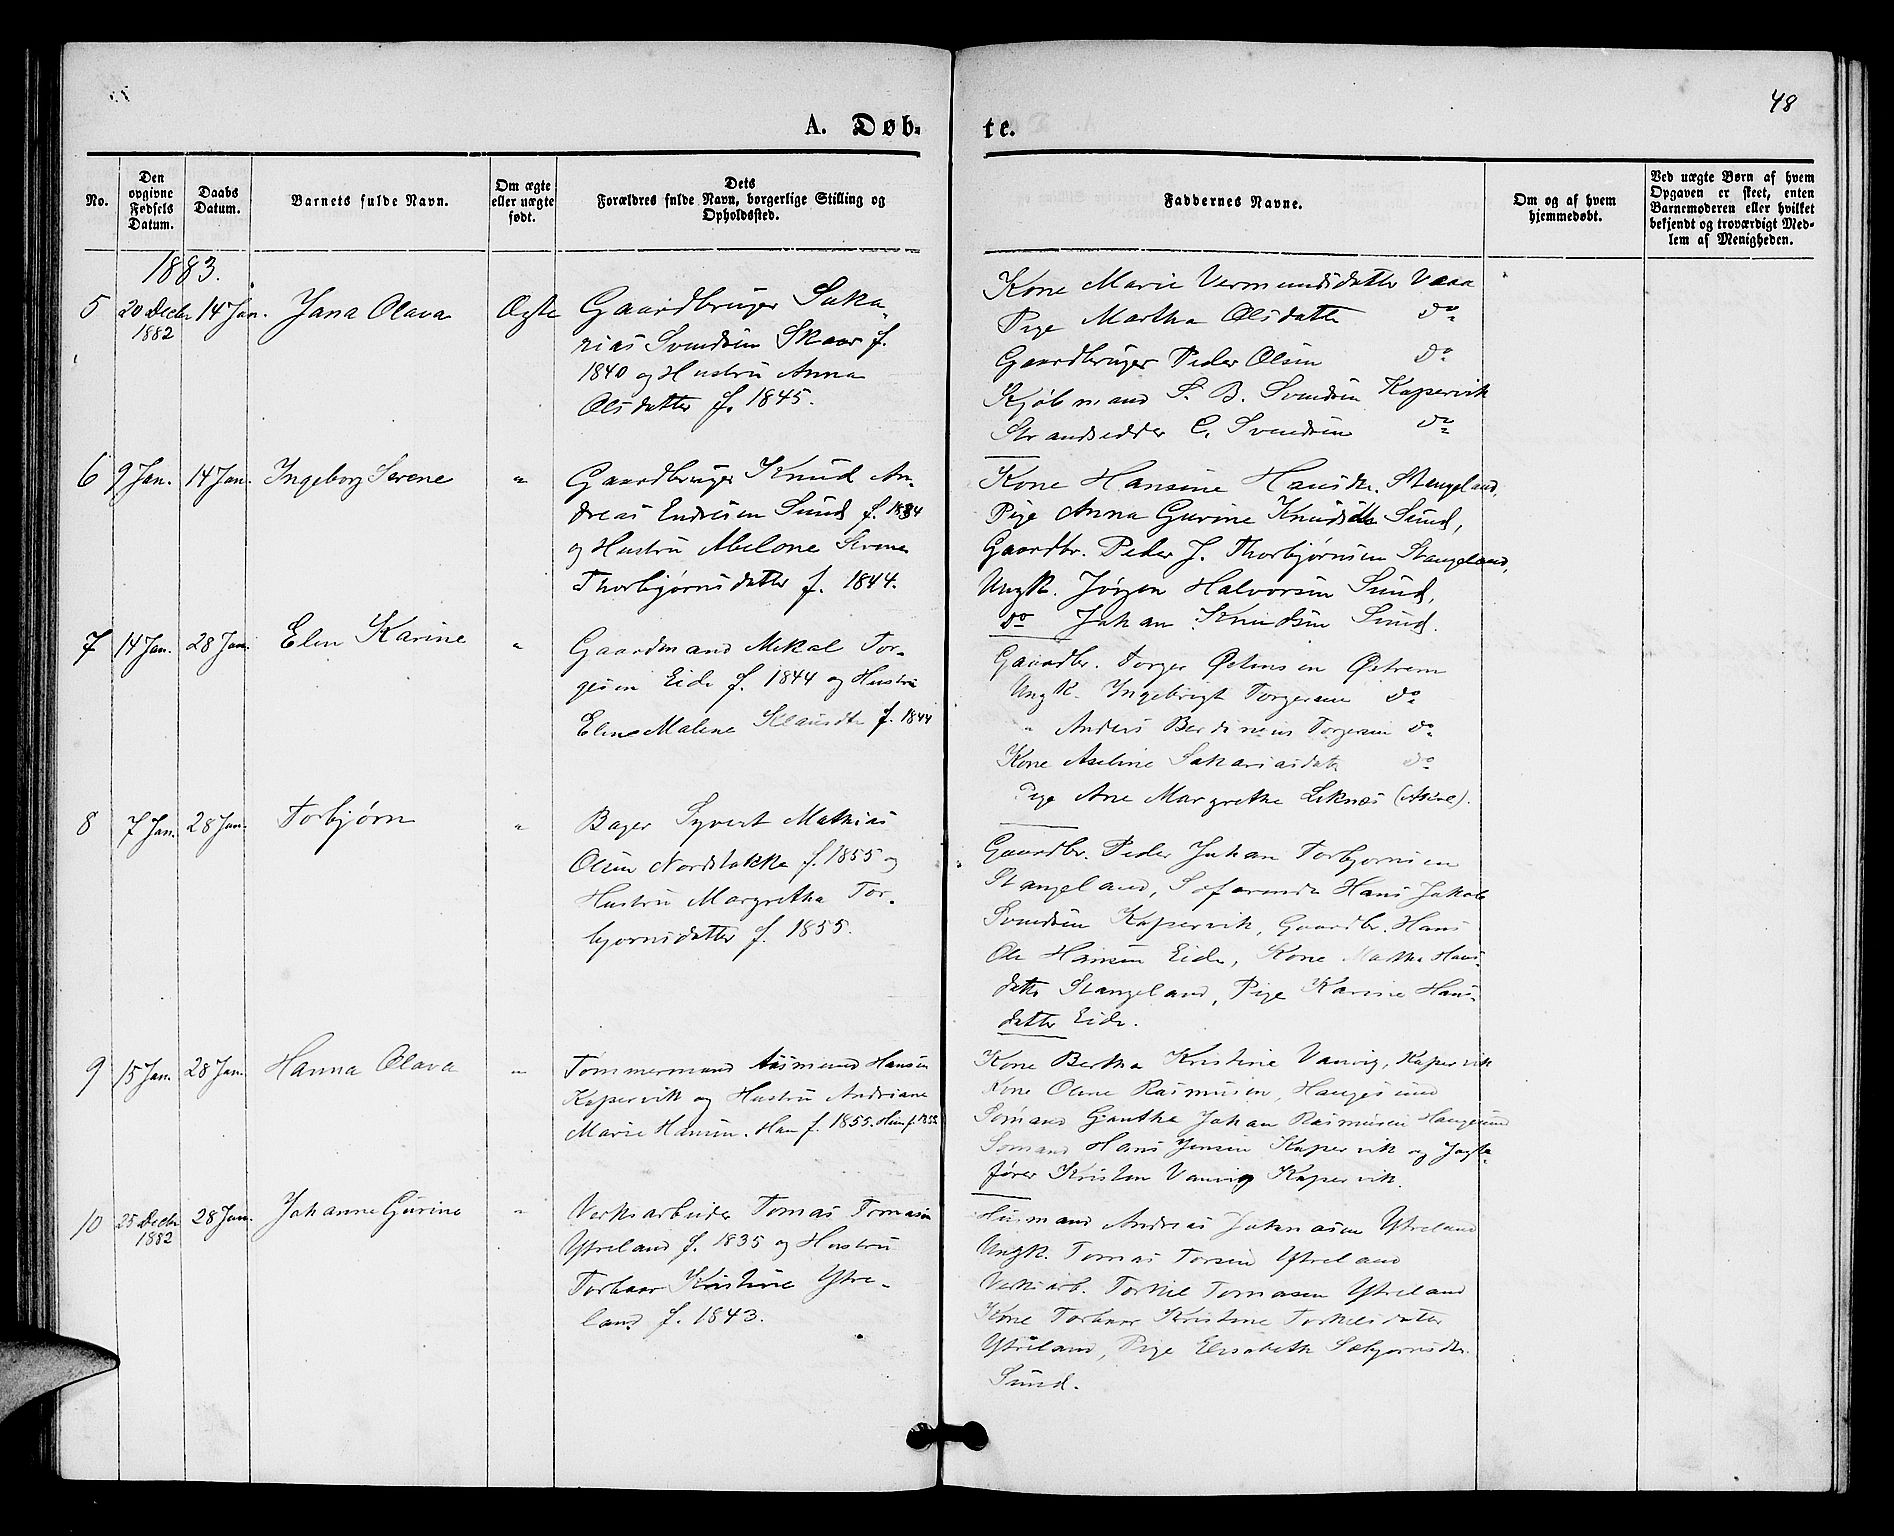 48
A. Døb-
te.
No.
Den
opgivne
Fødsels
Datum.
Daabs
Datum.
Barnets fulde Navn.
Om ægte
eller uægte
født.
Dets
Forældres fulde Navn, borgerlige Stilling og
Opholdssted.
Faddernes Navne.
Om og af hvem
hjemmedøbt.
Ved uægte Børn af hvem
Opgaven er skeet, enten
Barnemoderen eller hvilket
bekjendt og troværdigt Med-
lem af Menigheden.
1883.
5 20 Decbr 1882 14 Jan. Jana Olava Ægte
Gaardbruger Saka-
rias Svendsen Skaar f.
1840 og Hustru Anna
Olsdatter f. 1845.
Kone Marie Vermundsdatter Vaaa
Pige Martha Olsdatter do
Gaardbruger Peder Olsen do
Kjøbmand S. B. Svendsen Kopervik
Strandsidder C. Svendsen do
6 9 Jan. 14 Jan. Ingeborg Serene "
Gaardbruger Knud An-
dreas Endresen Sund f. 1834
og Hustru Abelone Serene
Thorbjørnsdatter f. 1844.
Kone Hansine Hansdtr. Stangeland,
Pige Anna Gurine Knudsdtr Sund,
Gaardbr. Peder J. Thorbjørnsen Stangeland,
Ungk. Jørgen Halvorsen Sund,
do Johan Knudsen Sund.
7 14 Jan. 28 Jan. Elen Karine "
Gaardmand Mikal Tor-
gesen Eide f. 1844 og Hustru
Elene Malene Klausdtr f. 1844
Gaardbr. Torger Østensen Østrem
Ungk. Ingebrigt Torgersen do
" Anders Berdineus Torgersen do
Kone Aseline Sakariasdatr do
Pige Ane Margrethe Liknes
8 7 Jan. 28 Jan. Torbjørn "
Bager Syvert Mathias
Olsen Nordstokke f. 1855 og
Hustru Margretha Tor-
bjornsdatter f. 1855.
Gaardbr. Peder Johan Torbjornsen
Stangeland, Sofarende Hans Jakob
Svendsen Kopervik, Gaardbr. Hans
Ole Hansen Eide, Kone Martha Hans-
datter Stangeland, Pige Karine Hans-
datter Eide.
9 15 Jan. 28 Jan. Hanna Olava "
Tommermand Aasmund Hansen
Kopervik og Hustru Andriane
Marie Hansen. Han f. 1855. Hun f. 1855
Kone Bertha Kristine Vanvig, Kopervik
Kone Oline Rasmusen, Haugesund
Sømand Johan Rasmusen Haugesund
Somand Hans Jensen Kopervik og Jagte-
fører Kristen Vanvig Kopervik.
10 25 Decbr 1882 28 Jan. Johanne Gurine "
Verksarbeider Tomas Tomasen
Ytreland f. 1835 og Hustru
Torbaar Kristine Ytre-
land f. 1843.
Husmand Andreas Johnasen Ytreland
Ungk. Tomas Torsen Ytreland
Verksarb. Torkil Tomasen Ytreland
Kone Torbaar Kristine Torkelsdatter
Ytreland, Pige Elisabeth Sebjornsdtr.
Sund.